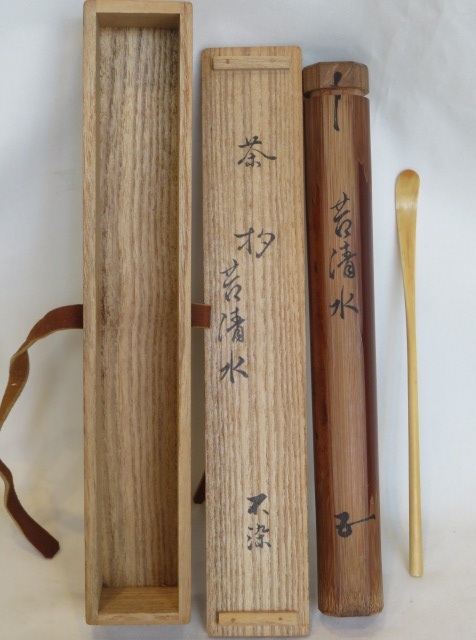 茶杓
苔清水
不染
苔清水